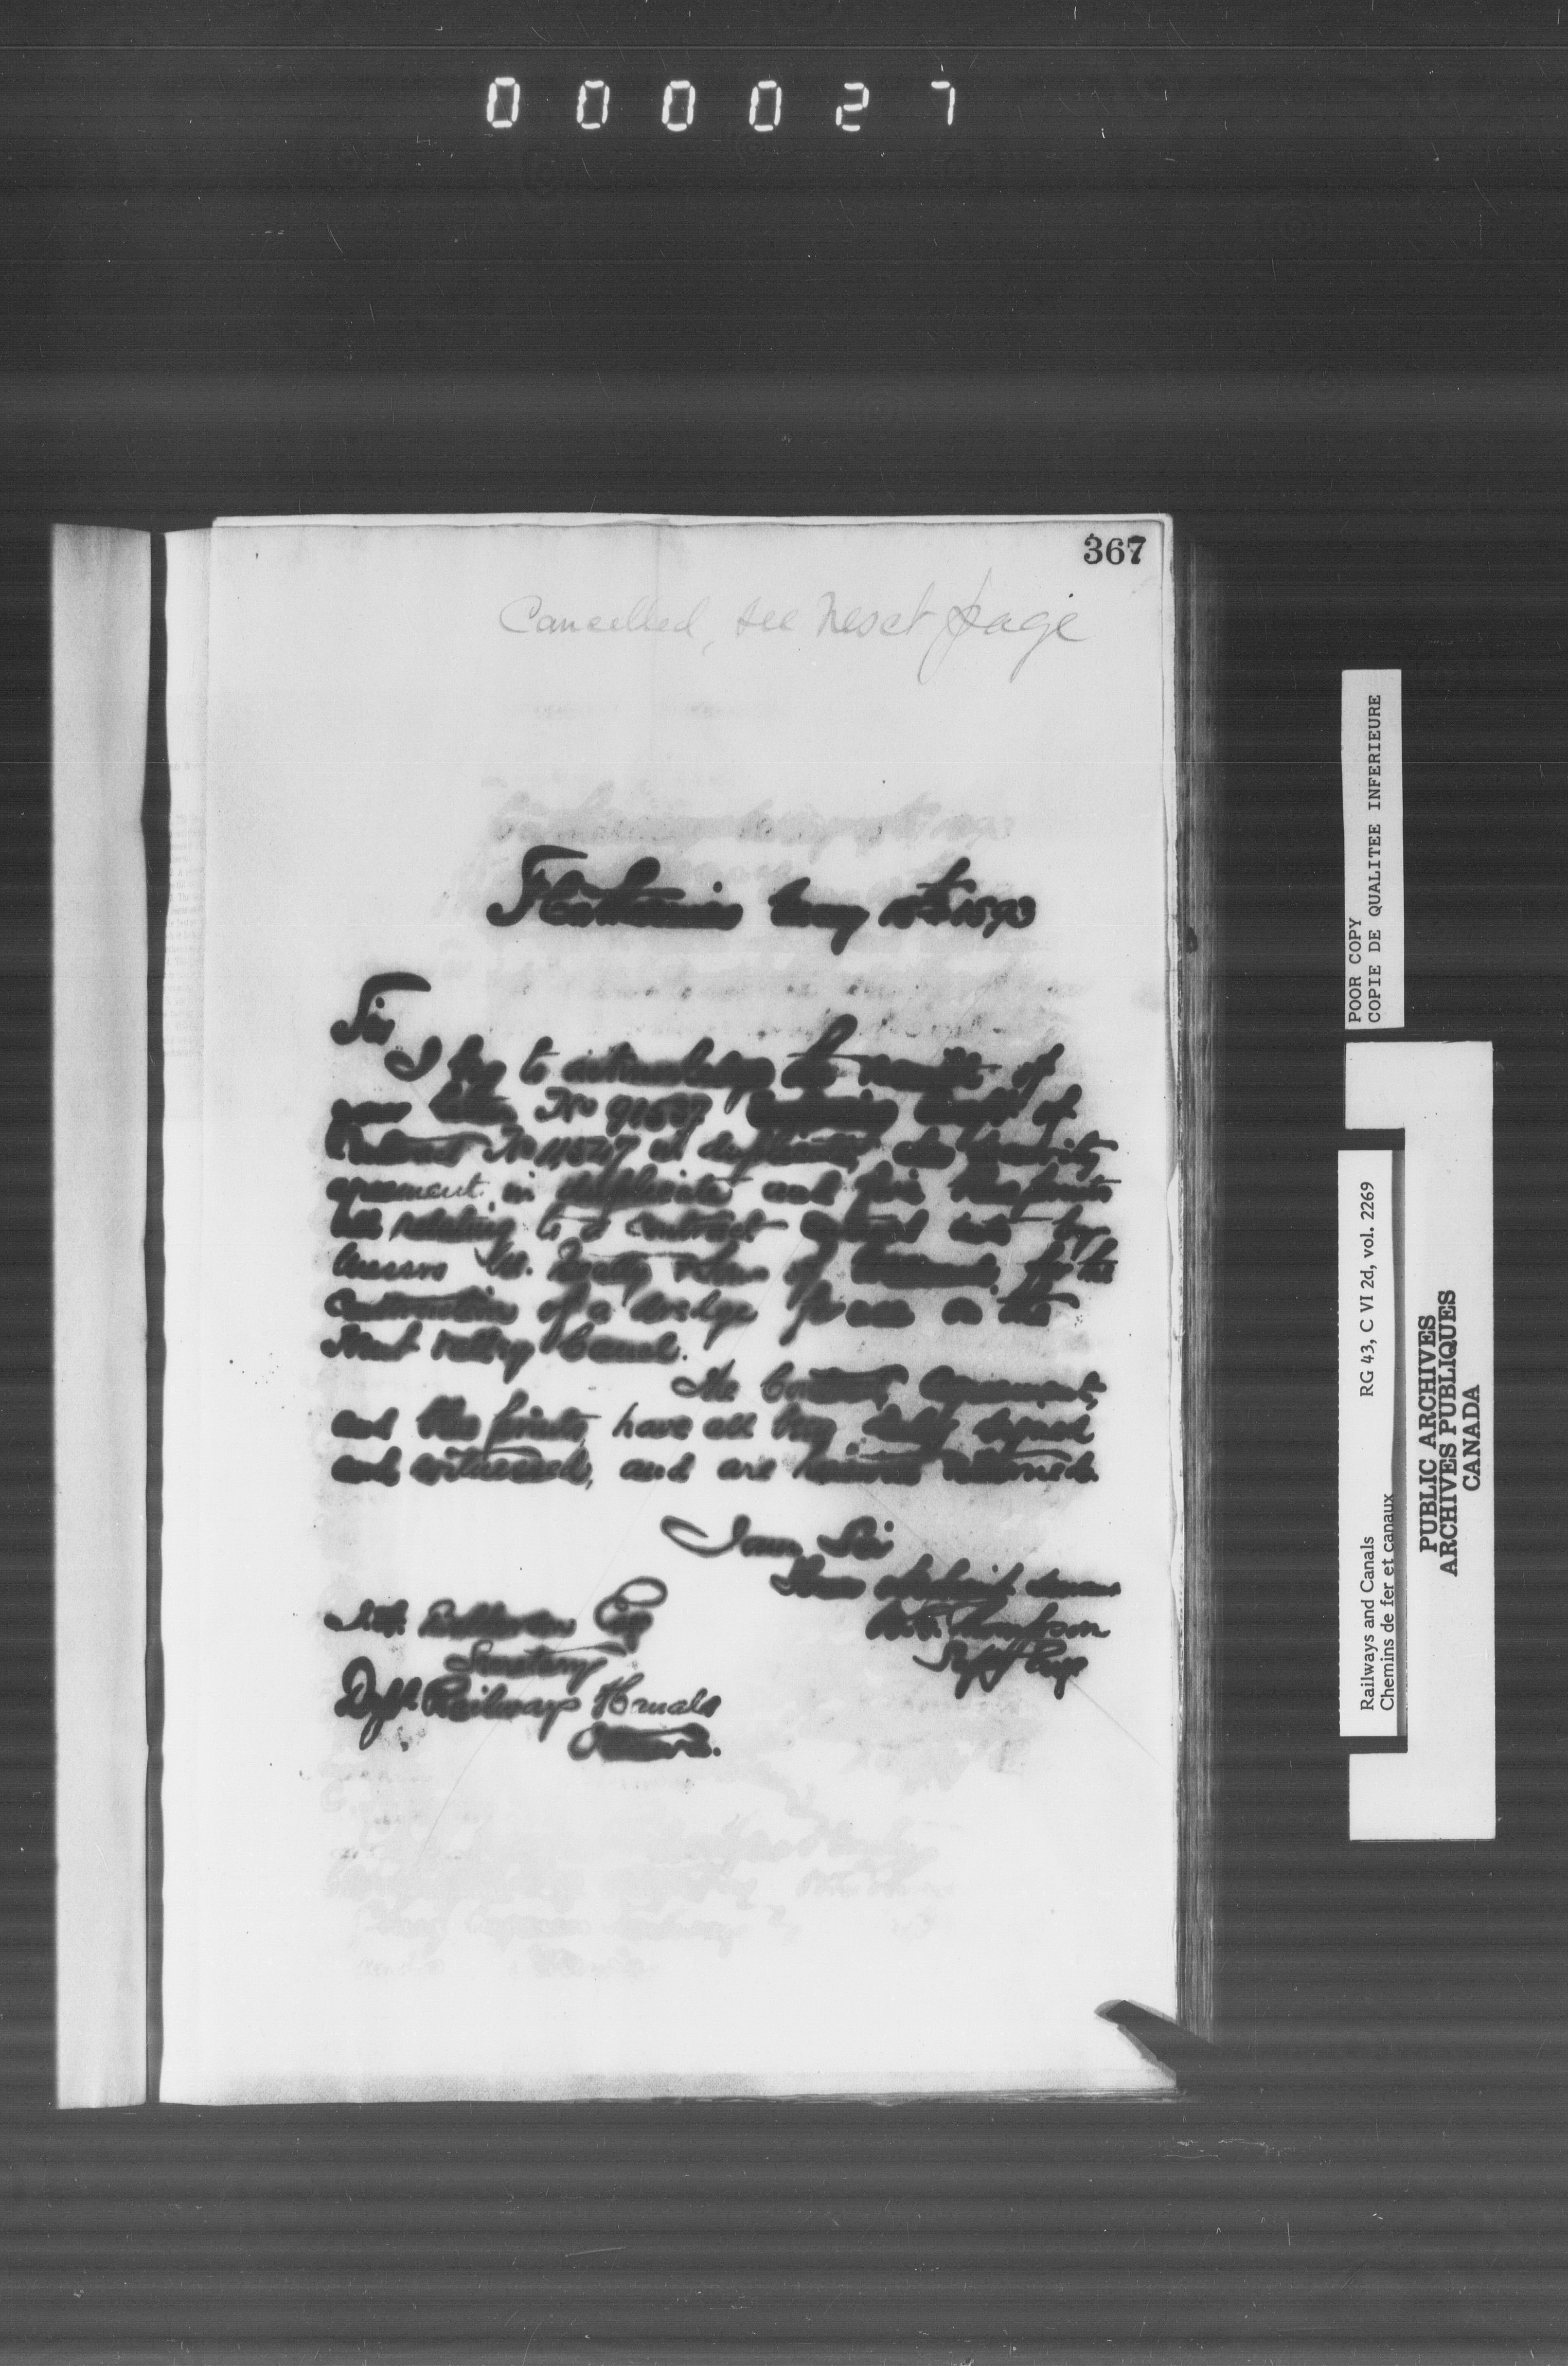 000027
367
Cancelled, see next page
St Catharines May 15th 1893
Sir
I beg to acknowledge the receipt of
your letter No 91537 enclosing draft of
Contract No 11547 in duplicate, also
agreement in duplicate and five blue prints
all relating to a contract entered into by
Messrs M. Beatty & Sons of Welland, for the
construction of a dredge for use on the
Trent Valley Canal.
The Contract, Agreement,
and blue prints, have all been duly signed
and witnessed, and are herewith returned.
I am, Sir
Your obedient servant
W.G. Thompson
Supt Engr
Esq
Secretary
Dept Railways & Canals
Ottawa.
POOR COPY
COPIE DE QUALITEE INFERIEURE
Railways and Canals RG 43, C VI 2d, vol. 2269
Chemins de fer et canaux
PUBLIC ARCHIVES
ARCHIVES PUBLIQUES
CANADA